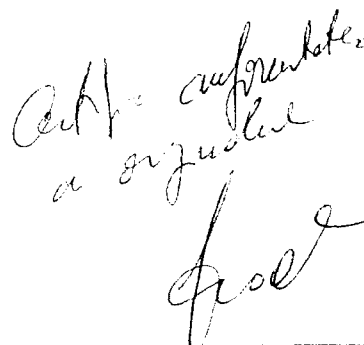 Certific conformitatea
cu originalul